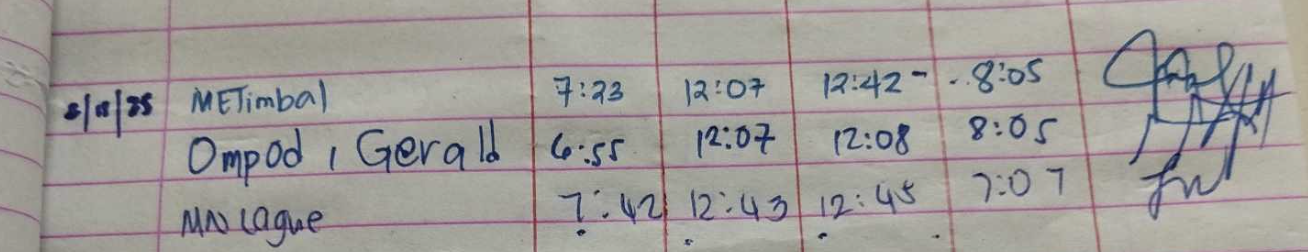 METimbal 7:23 12:07 12:42 - 8:05
Ompod, Gerald 6:55 12:07 12:08 8:05
MN Lague 7:42 12:43 12:45 7:07